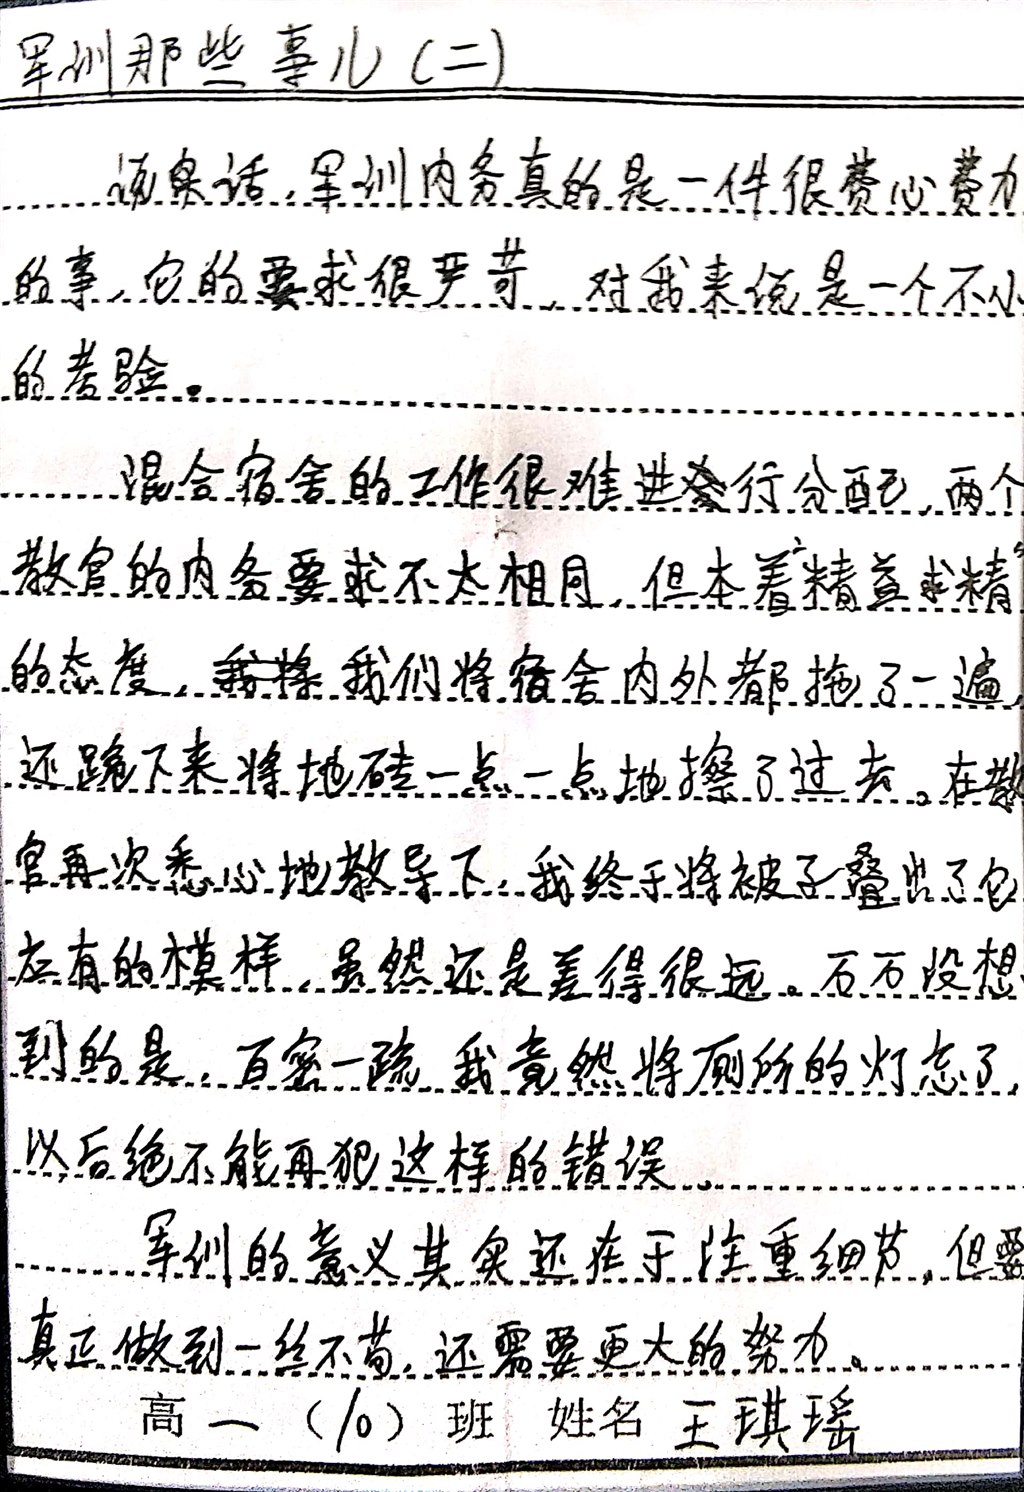 军训那些事儿(二)
说实话,军训内务真的是一件很费心费力
的事,它的要求很严苛,对我来说是一个不小
的考验。
混合宿舍的工作很难进行分配,两个
教官的内务要求不太相同,但本着“精益求精”
的态度,我将我们将宿舍内外都拖了一遍,
还跪下来将地砖一点一点地擦了过去。在教
官再次悉心地教导下,我终于将被子叠出了它
应有的模样,虽然还是差得很远。万万没想
到的是,百密一疏,我竟然将厕所的灯忘了,
以后绝不能再犯这样的错误。
军训的意义其实还在于注重细节,但要
真正做到一丝不苟,还需要更大的努力。
高一(10)班 姓名 王琪瑶